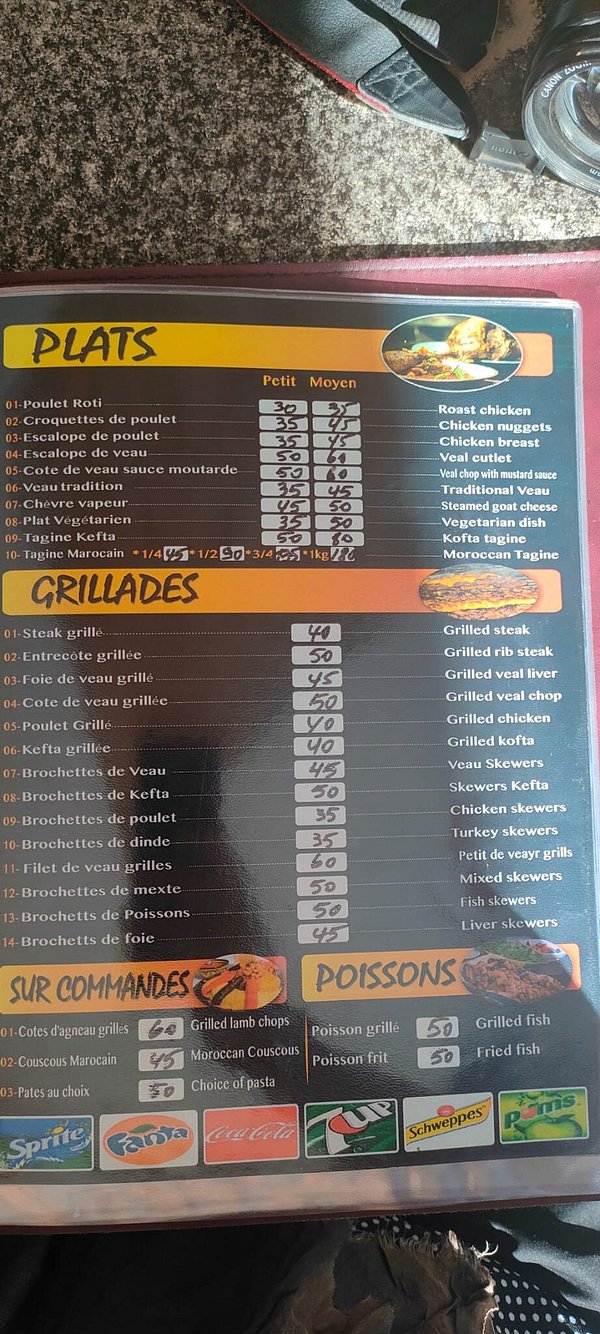 CANON ZOOM
Canon
PLATS
Petit Moyen
01-Poulet Roti 30 35 Roast chicken
02-Croquettes de poulet 35 45 Chicken nuggets
03-Escalope de poulet 35 45 Chicken breast
04-Escalope de veau 50 60 Veal cutlet
05-Cote de veau sauce moutarde 50 60 Veal chop with mustard sauce
06-Veau tradition 35 45 Traditional Veau
07-Chèvre vapeur 45 50 Steamed goat cheese
08-Plat Végétarien 35 50 Vegetarian dish
09-Tagine Kefta 50 80 Kofta tagine
10-Tagine Marocain *1/4 45 *1/2 90 *3/4 *1kg Moroccan Tagine
GRILLADES
01-Steak grillé 40 Grilled steak
02-Entrecôte grillée 50 Grilled rib steak
03-Foie de veau grillé 45 Grilled veal liver
04-Cote de veau grillée 50 Grilled veal chop
05-Poulet Grillé 40 Grilled chicken
06-Kefta grillée 40 Grilled kofta
07-Brochettes de Veau 45 Veau Skewers
08-Brochettes de Kefta 50 Skewers Kefta
09-Brochettes de poulet 35 Chicken skewers
10-Brochettes de dinde 35 Turkey skewers
11-Filet de veau grilles 60 Petit de veayr grills
12-Brochettes de mexte 50 Mixed skewers
13-Brochetts de Poissons 50 Fish skewers
14-Brochetts de foie 45 Liver skewers
SUR COMMANDES
01-Cotes d'agneau grillés 60 Grilled lamb chops
02-Couscous Marocain 45 Moroccan Couscous
03-Pates au choix 50 Choice of pasta
POISSONS
Poisson grillé 50 Grilled fish
Poisson frit 50 Fried fish
Sprite Fanta Coca-Cola 7UP Schweppes Poms